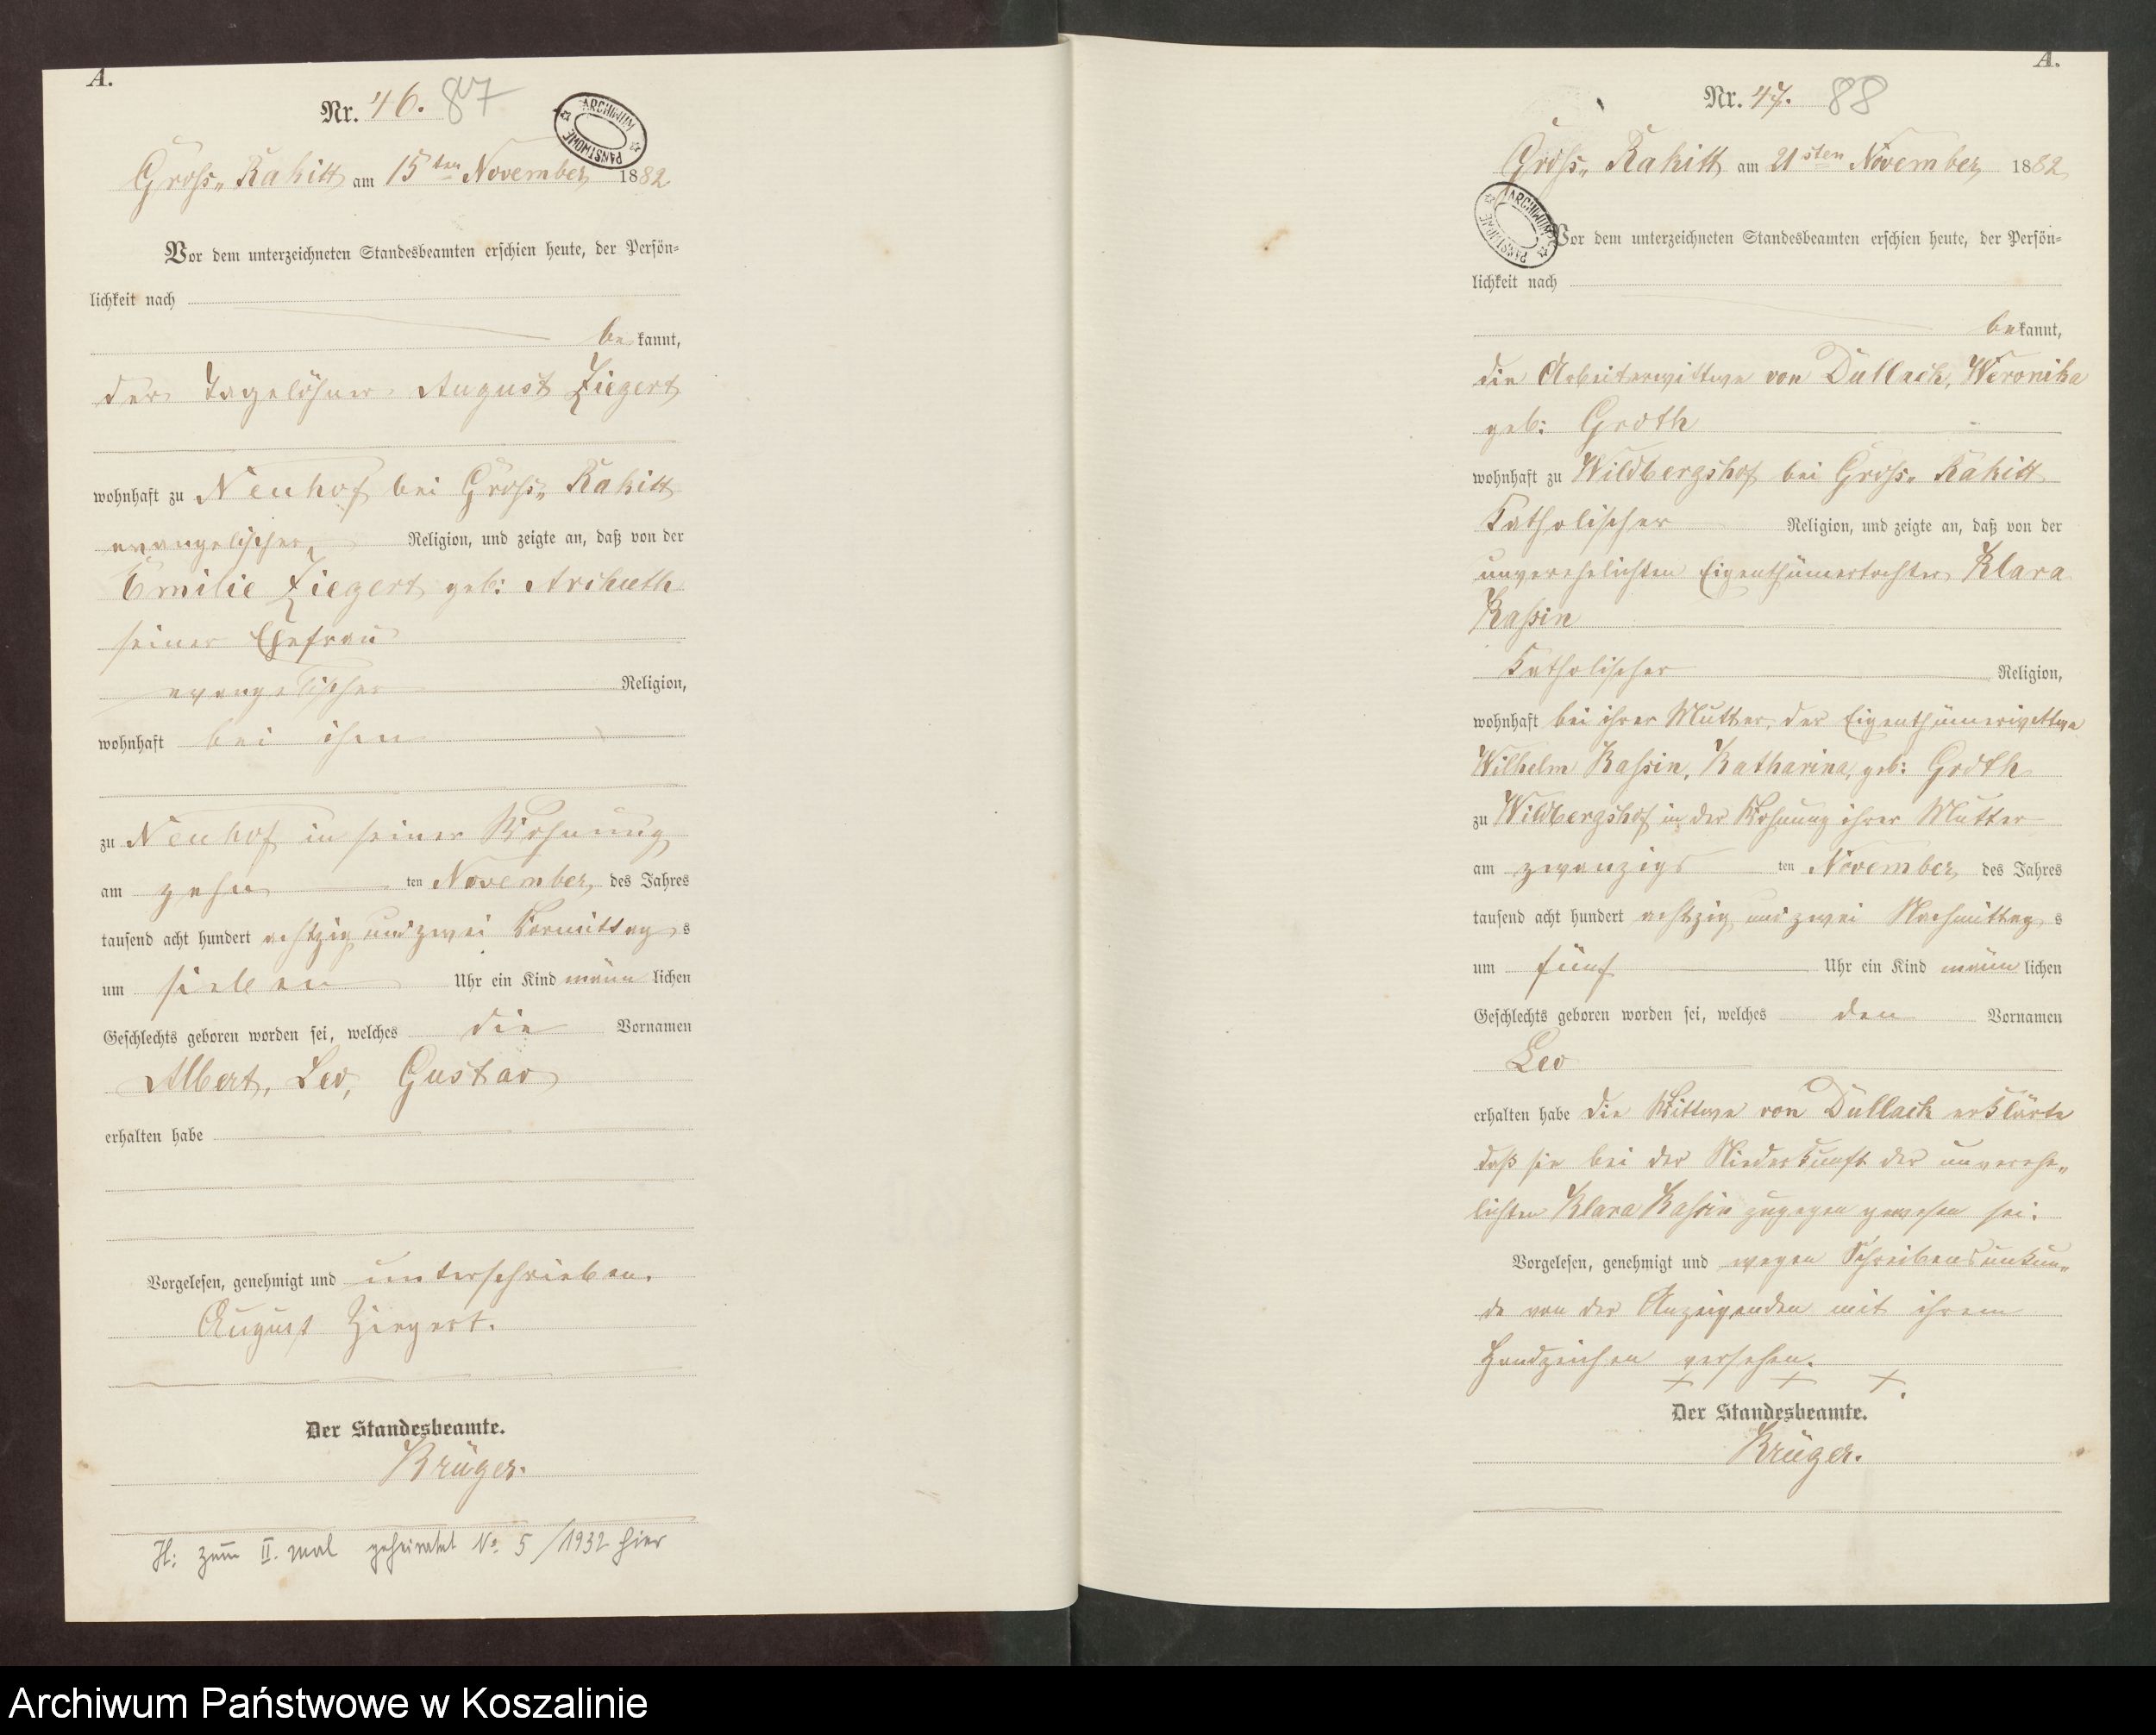 A.
Nr. 46. 87
ARCHIWUM PAŃSTWOWE
Gross„ Rakitt am 15ten November 1882
Vor dem unterzeichneten Standesbeamten erschien heute, der Persön-
lichkeit nach
bekannt,
der Tagelöhner August Ziegert
wohnhaft zu Neuhof bei Gross„ Rakitt
evangelischer Religion, und zeigte an, daß von der
Emilie Ziegert geb:
seiner Ehefrau
evangelischer Religion,
wohnhaft bei ihm
zu Neuhof in seiner Wohnung
am zehn ten November des Jahres
tausend acht hundert achtzig und zwei Vormittags
um sieben Uhr ein Kind männlichen
Geschlechts geboren worden sei, welches die Vornamen
Albert, Leo, Gustav
erhalten habe
Vorgelesen, genehmigt und unterschrieben.
August Ziegert.
Der Standesbeamte.
Krüger.
H: zum II. mal geheiratet No. 5/1932 hier
A.
Nr. 47. 88
Gross„ Rakitt am 21sten November 1882
ARCHIWUM PAŃSTWOWE
Vor dem unterzeichneten Standesbeamten erschien heute, der Persön-
lichkeit nach
bekannt,
die Arbeiterwittwe von Dullack, Weronika
geb: Groth
wohnhaft zu Wildbergshof bei Gross„ Rakitt
katholischer Religion, und zeigte an, daß von der
unverehelichten Eigenthümertochter Klara
Kassin
katholischer Religion,
wohnhaft bei ihrer Mutter, der Eigenthümerwittwe
Wilhelm Kassin, Katharina, geb: Groth
zu Wildbergshof in der Wohnung ihrer Mutter
am zwanzigs ten November des Jahres
tausend acht hundert achtzig und zwei Nachmittags
um fünf Uhr ein Kind männlichen
Geschlechts geboren worden sei, welches den Vornamen
Leo
erhalten habe die Wittwe von Dullack erklärte
daß sie bei der Niederkunft der unverehe„
lichten Klara Kassin zugegen gewesen sei.
Vorgelesen, genehmigt und wegen Schreibensunkun„
de von der Anzeigenden mit ihrem
Handzeichen versehen.
+ + +.
Der Standesbeamte.
Krüger.
Archiwum Państwowe w Koszalinie